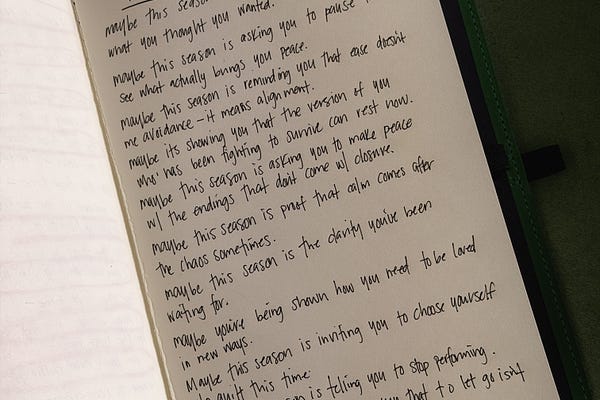 maybe this season
what you thought you wanted.
maybe this season is asking you to pause
see what actually brings you peace.
maybe this season is reminding you that ease doesn't
me avoidance - it means alignment.
maybe its showing you that the version of you
who has been fighting to survive can rest now.
maybe this season is asking you to make peace
w/ the endings that don't come w/ closure.
maybe this season is proof that calm comes after
the chaos sometimes.
maybe this season is the clarity you've been
waiting for.
maybe you're being shown how you need to be loved
in new ways.
Maybe this season is inviting you to choose yourself
guilt this time.
is telling you to stop performing.
that to let go isn't